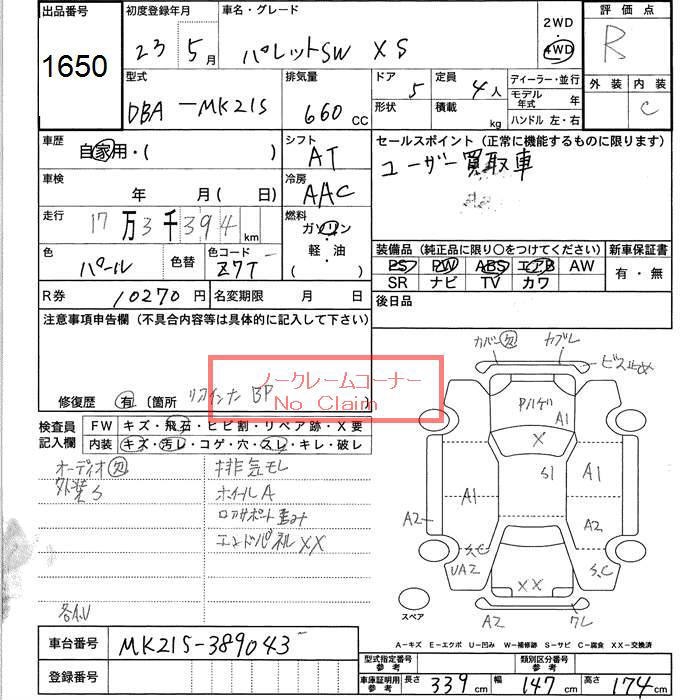 出品番号
1650
初度登録年月
23 5月
車名・グレード
パレットSW XS
2WD
4WD
評価点
R
型式
DBA-MK21S
排気量
660 CC
ドア
5
定員
4人
形状
積載
kg
ディーラー・並行
モデル年式 年
ハンドル 左・右
外装 内装
C
車歴
自家用・( )
シフト
AT
セールスポイント (正常に機能するものに限ります)
ユーザー買取車
車検
年 月(日)
冷房
AAC
走行
17万3千394 km
燃料
ガソリン
軽・油
( )
色
パール
色替
色コード
Z7T
装備品 (純正品に限り○をつけてください)
PS PW ABS エアB AW
SR ナビ TV カワ
新車保証書
有・無
R券
10270円
名変期限 月 日
後日品
注意事項申告欄 (不具合内容等は具体的に記入して下さい)
ノークレームコーナー
No Claim
修復歴 有 (箇所 リヤインナー BP
検査員記入欄
FW キズ・飛石・ヒビ割・リペア跡・X要
内装 キズ・汚レ・コゲ・穴・スレ・キレ・破レ
オーディオ欠
外装S
排気モレ
ホイールA
ロアサポート歪み
エンドパネルXX
各A.U
カバー欠
カブレ
ビス止め
Pハゲ
A1
X
S1
A1
A1
A2
A2
S.C
UA2
S.C
XX
A2
ワレ
スペア
A-キズ E-エクボ U-凹み W-補修跡 S-サビ C-腐食 XX-交換済
車台番号
MK21S-389043
登録番号
型式指定番号 参考
類別区分番号 参考
車庫証明用 参考
長さ 339 cm 幅 147 cm 高さ 174 cm